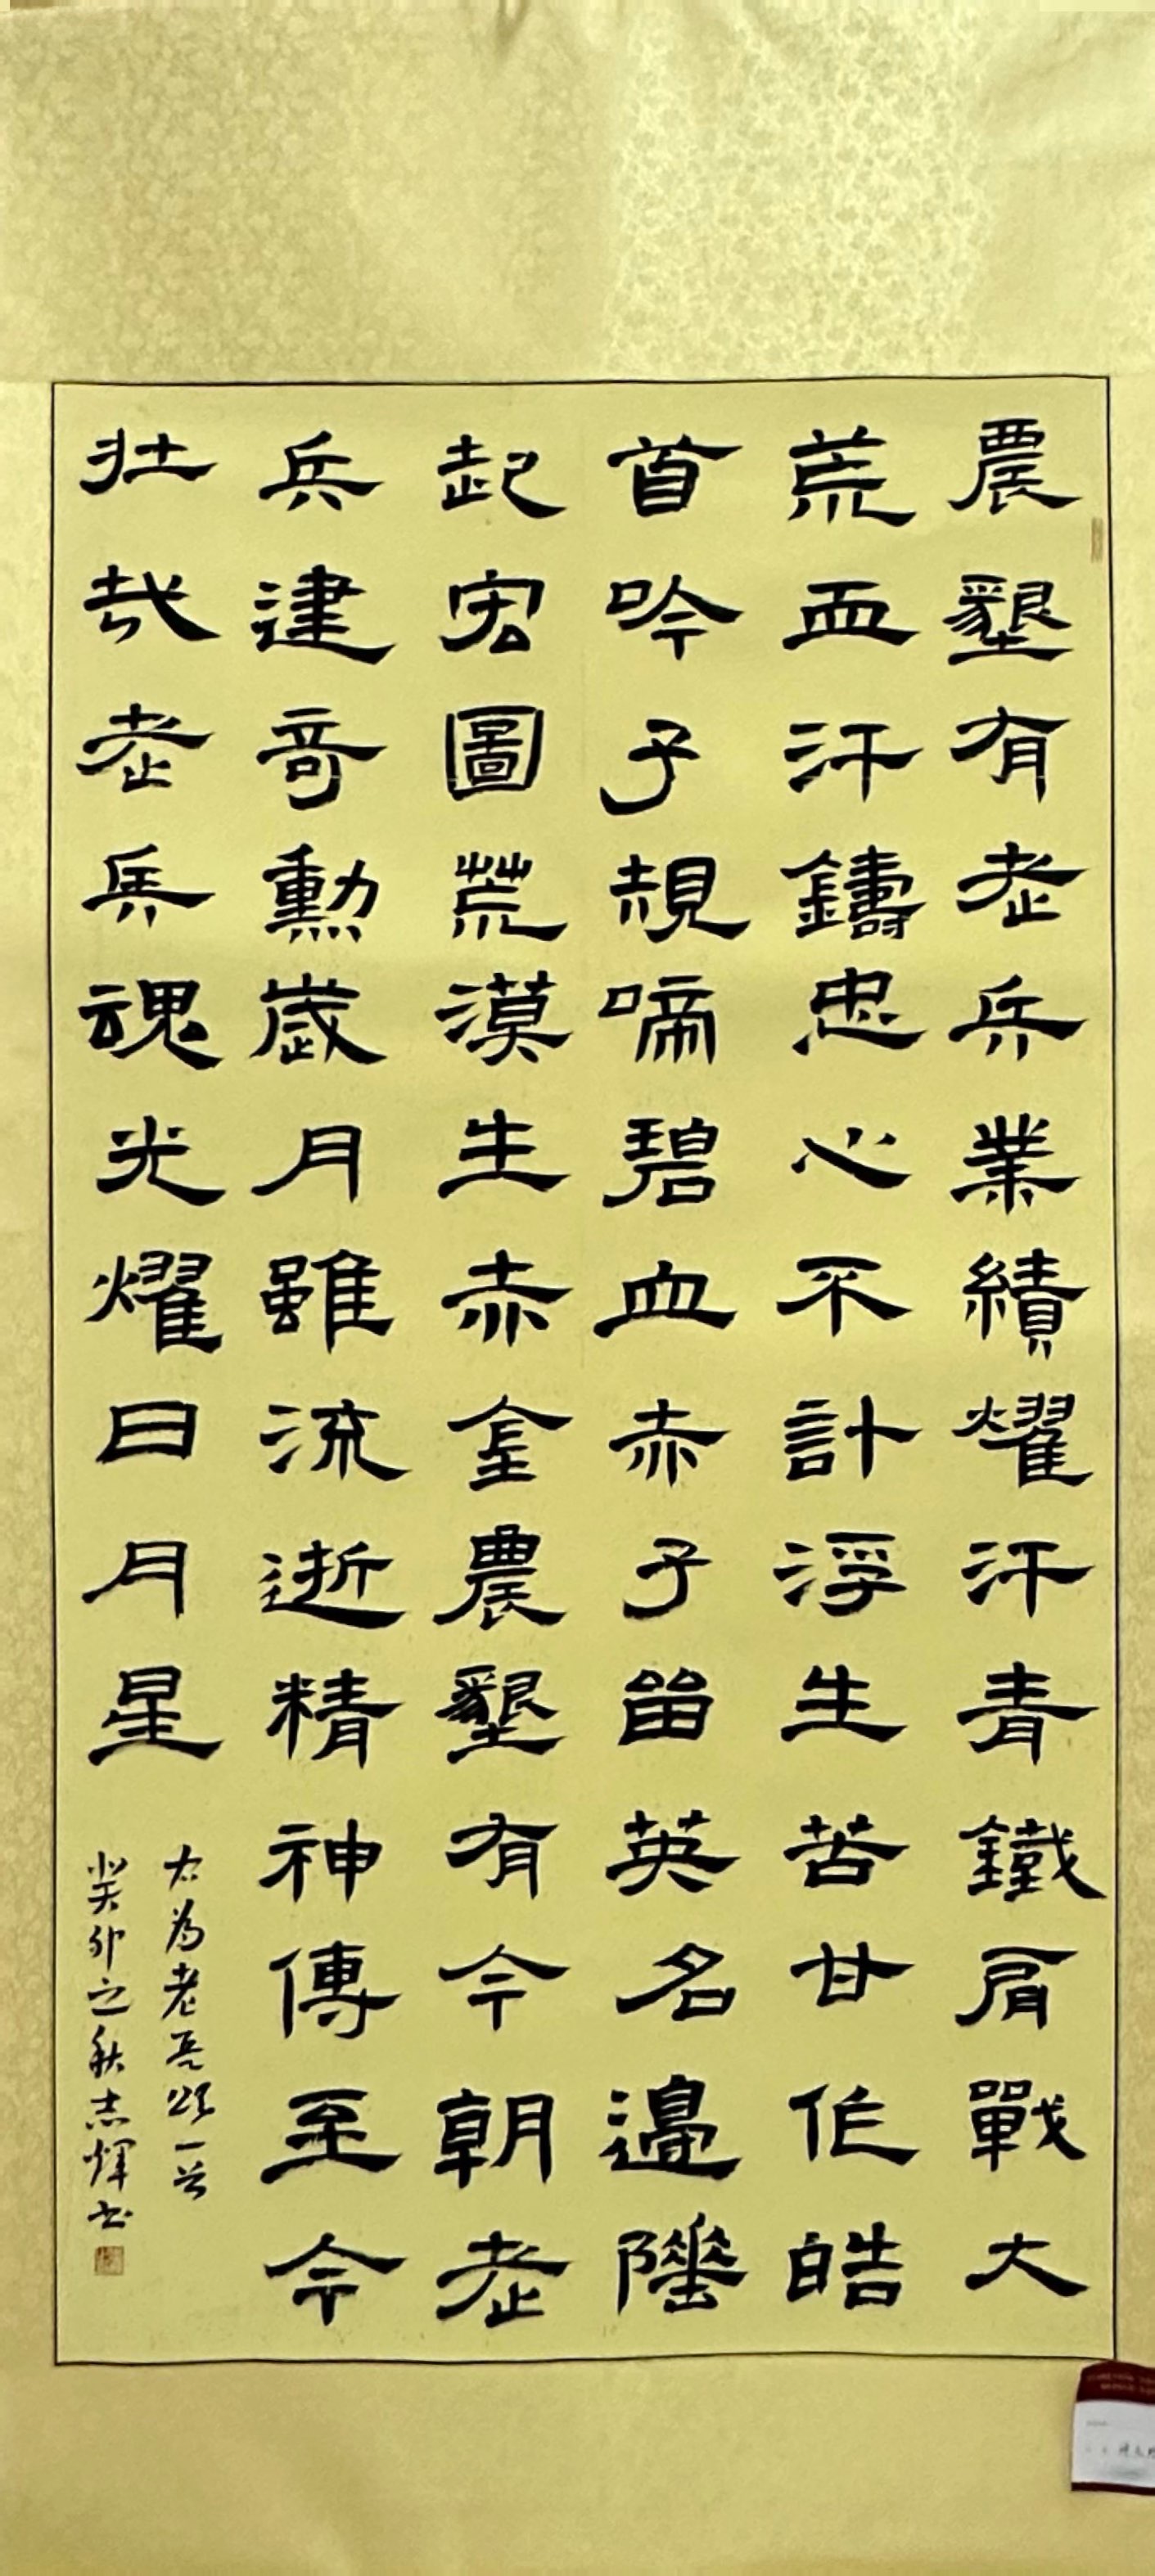 農墾有老兵業績耀汗青鐵肩戰大
荒血汗鑄忠心不計浮生苦甘作皓
首吟子規啼碧血赤子畱英名邊陲
起宏圖荒漠生赤金農墾有今朝老
兵建奇勳歲月雖流逝精神傳至今
壯哉老兵魂光耀日月星
右為老兵頌一首
癸卯之秋志輝書